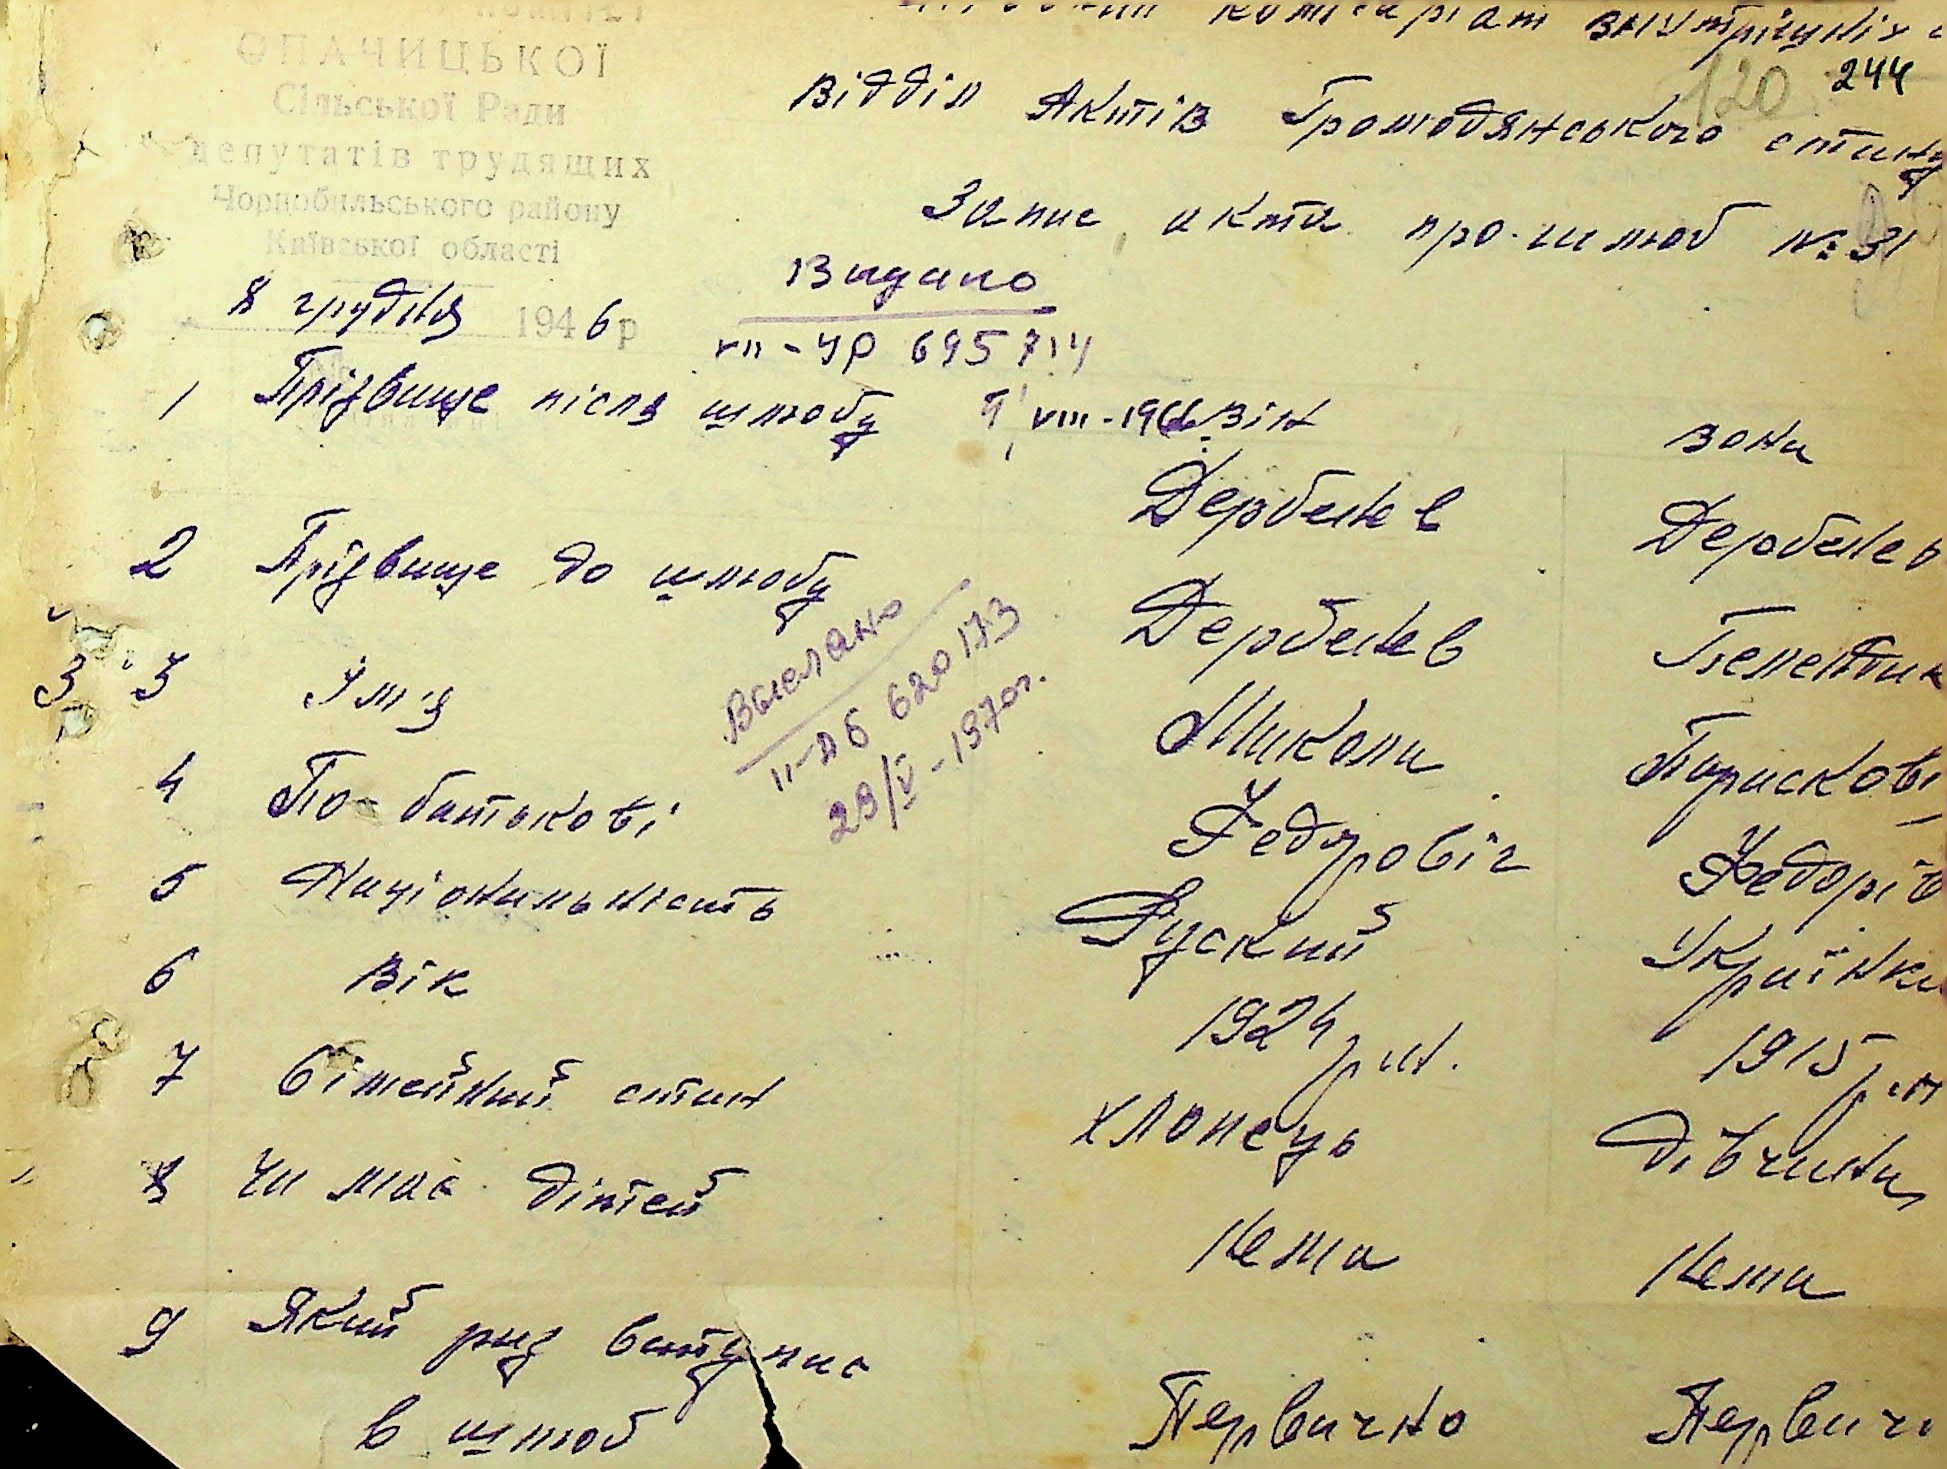 ОПАЧИЦЬКОЇ
Сільської Ради
депутатів трудящих
Чорнобильського району
Київської області
8 грудня 1946 р
комісаріат внутрішніх
120 244
Відділ Актів Громодянського стану
Запис акта про шлюб № 31
Видано
VII-ЧР 695714
9/VIII-1966
1 Прізвище після шлюбу він вона
Дербенев Дербенев
2 Прізвище до шлюбу Дербенев
Выслано
II-ЛБ 620173
29/V-1970г.
3 3 Ім'я Микола Парискові
4 По батькові Федоровіч Федорів
5 Національність Руский Українка
6 Вік 1924 р.н. 1915 р.н
7 Сімейний стан хлопець дівчина
8 Чи має дітей нема нема
9 Який раз вступає
в шлюб Первично Первичн